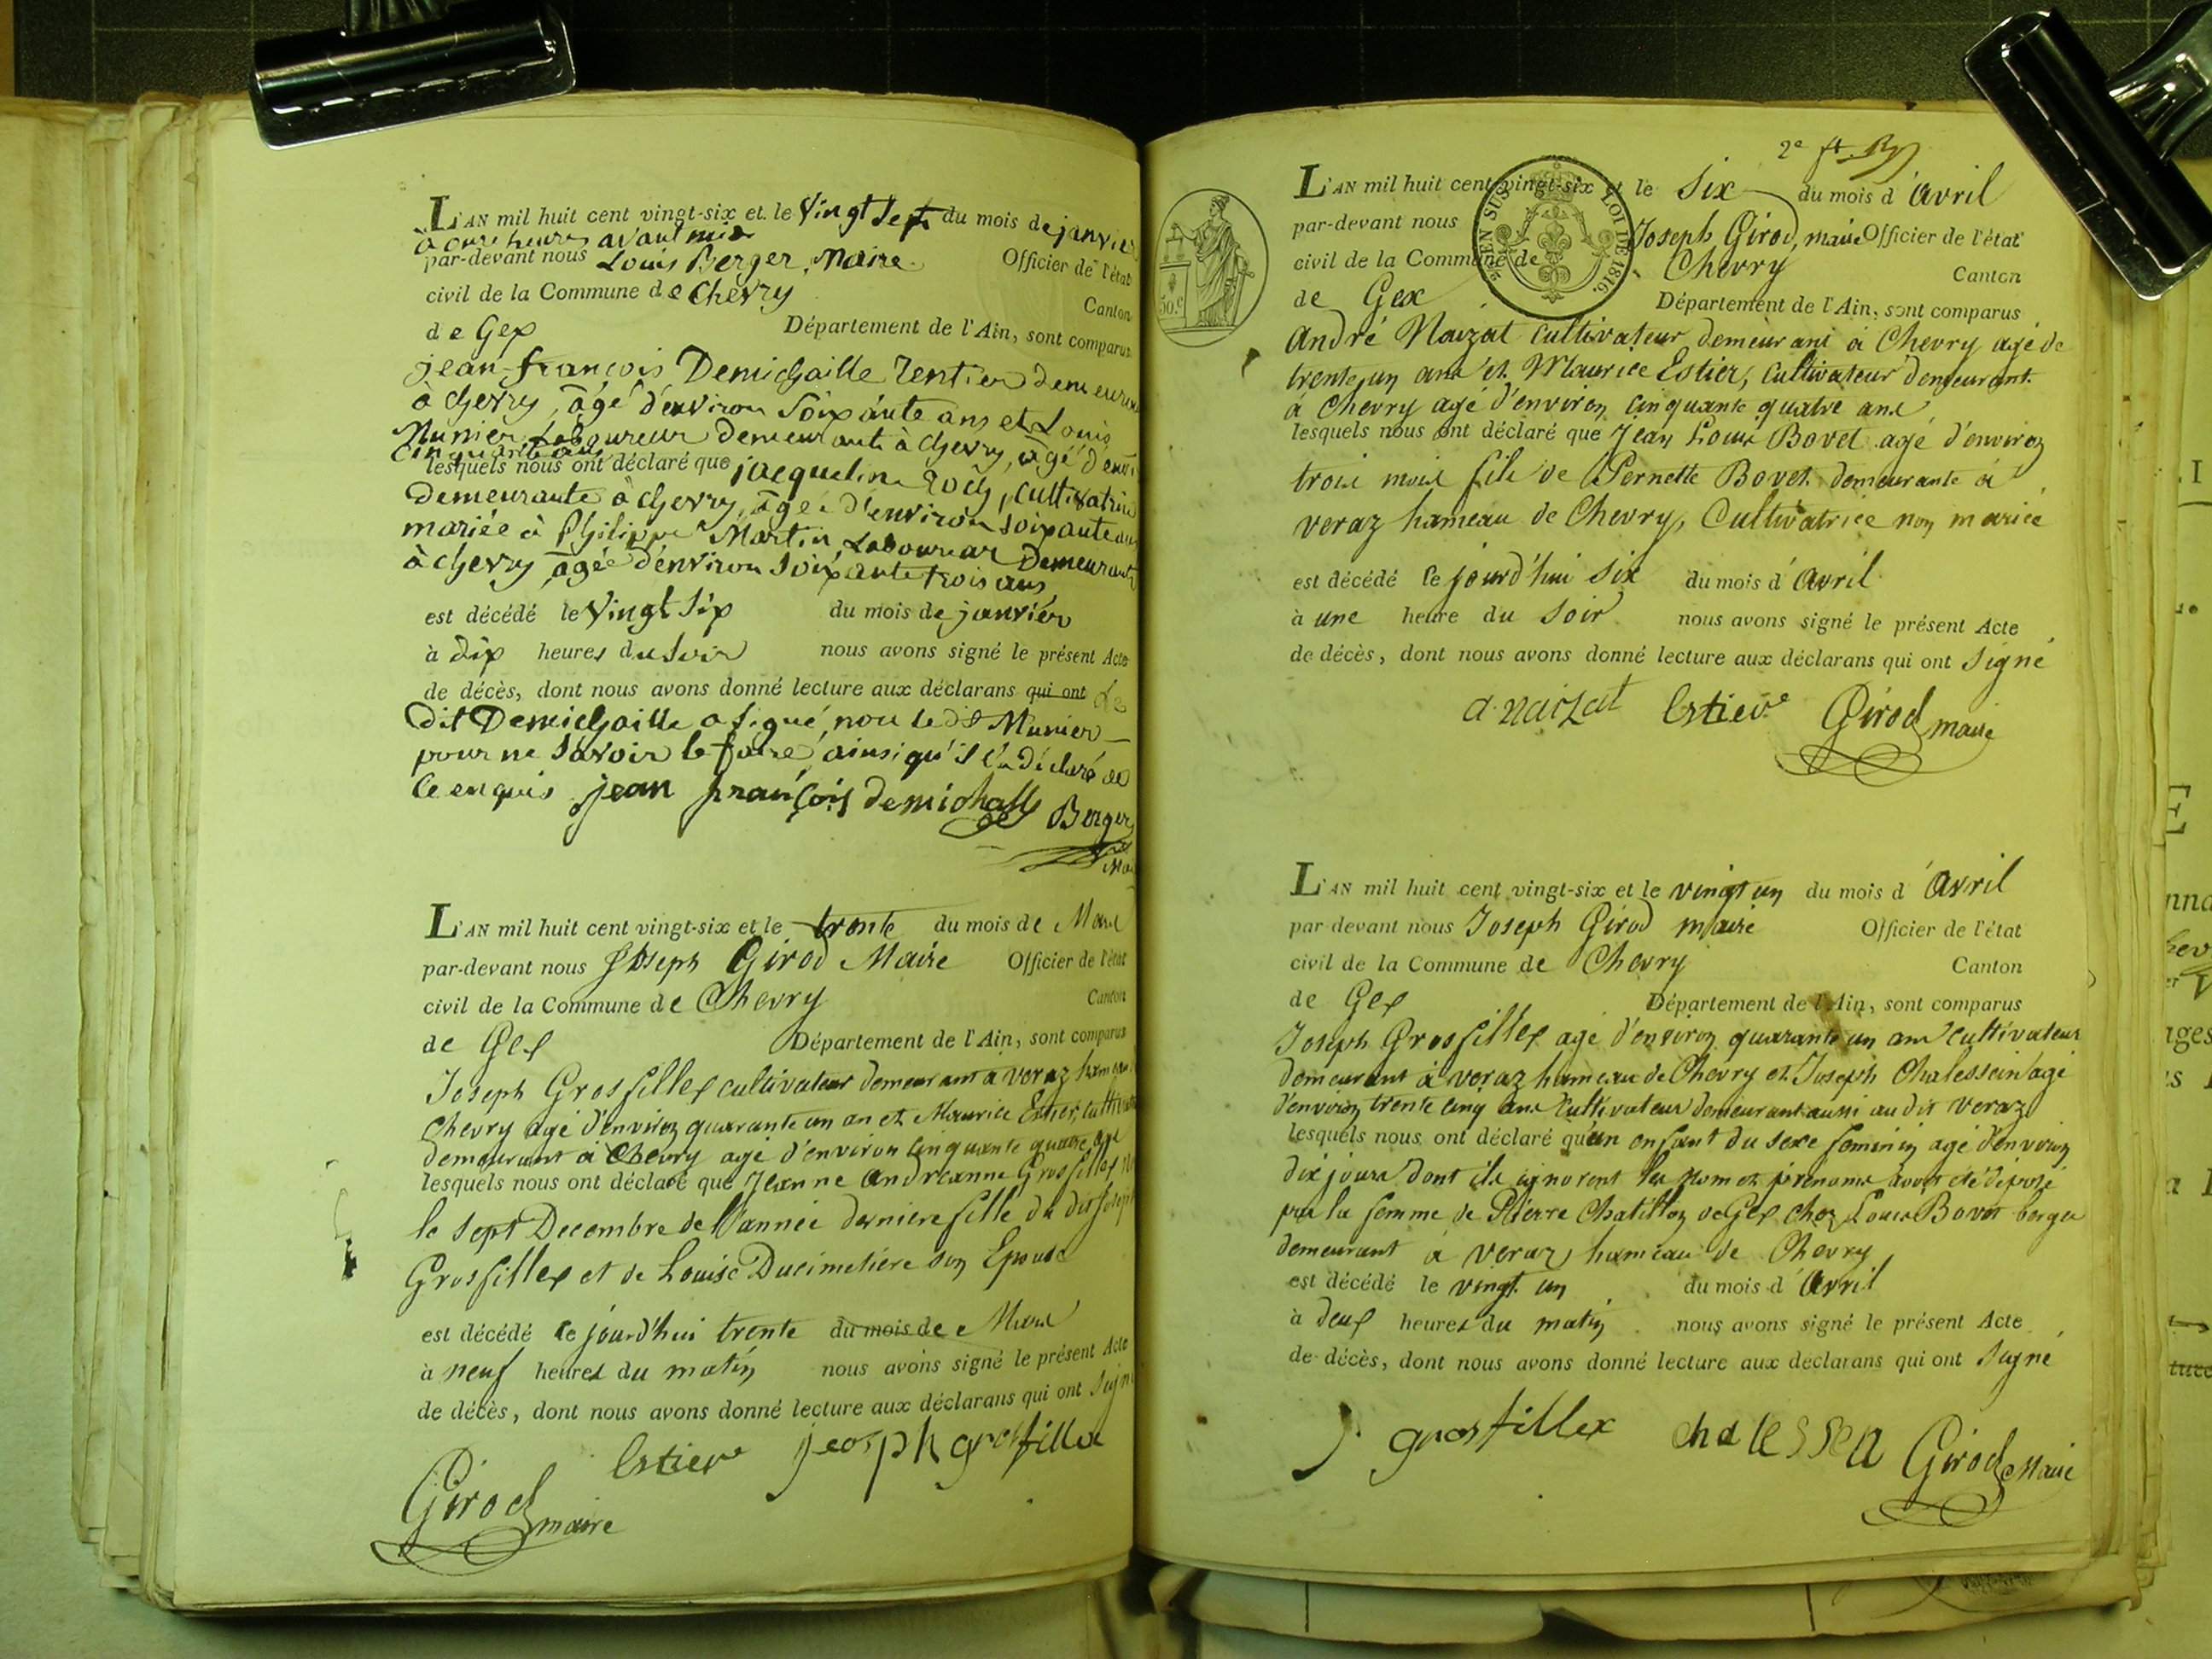 L'AN mil huit cent vingt-six et le vingt sept du mois de janvier
à onze heures avant midi
par-devant nous Louis Berger, Maire Officier de l'état
civil de la Commune de Chevry Canton
de Gex Département de l'Ain, sont comparus
jean-françois Demichaille Rentier demeurant
à chevry, âgé d'environ Soixante ans et Louis
Munier Laboureur demeurant à chevry, âgé d'envi
cinquante ans
lesquels nous ont déclaré que jacqueline Roch, Cultivatrice
Demeurante à chevry, âgée d'environ soixante ans
mariée à Philippe Martin Laboureur Demeurant
à chevry âgée d'environ Soixante trois ans
est décédé le Vingt Six du mois de janvier
à dix heures du Soir nous avons signé le présent Acte
de décès, dont nous avons donné lecture aux déclarans qui ont Le
dit Demichaille a signé, non le dit Munier
pour ne savoir le faire, ainsi qu'il l'a déclaré de
ce enquis jean françois demichalle Berger
Mai
L'AN mil huit cent vingt-six et le trente du mois de Mars
par-devant nous Joseph Girod Maire Officier de l'état
civil de la Commune de Chevry Canton
de Gex Département de l'Ain, sont comparus
Joseph Grosfillex cultivateur demeurant à veraz hameau
Chevry agé d'environ quarante un an et Maurice Estier, cultivateur
demeurant à Chevry agé d'environ cinquante quatre ans
lesquels nous ont déclaré que Jeanne Andréanne Grosfillex
le sept Decembre de l'année derniere fille du dit Joseph
Grosfillex et de Louise Ducimetière son Epouse
est décédé ce jourd'hui trente du mois de Mars
à neuf heures du matin nous avons signé le présent Acte
de décès, dont nous avons donné lecture aux déclarans qui ont signé
Estier jeosph grosfillex
Girod maire
2e ft.
L'AN mil huit cent vingt-six et le Six du mois d'avril
par-devant nous Joseph Girod, maire Officier de l'état
civil de la Commune de Chevry Canton
de Gex Département de l'Ain, sont comparus
EN SUS LOI DE 1816.
50.c
André Naizat cultivateur demeurant à Chevry agé de
trente un ans et Maurice Estier, cultivateur demeurant
à Chevry agé d'environ cinquante quatre ans
lesquels nous ont déclaré que Jean Louis Bovet agé d'environ
trois mois fils de Pernette Bovet demeurante à
veraz hameau de Chevry, Cultivatrice non mariée
est décédé ce jourd'hui six du mois d'avril
à une heure du soir nous avons signé le présent Acte
de décès, dont nous avons donné lecture aux déclarans qui ont signé
a. naizat Estier Girod maire
L'AN mil huit cent vingt-six et le vingt un du mois d'avril
par devant nous Joseph Girod maire Officier de l'état
civil de la Commune de Chevry Canton
de Gex Département de l'Ain, sont comparus
Joseph Grosfillex agé d'environ quarante un ans cultivateur
demeurant à veraz hameau de Chevry et Joseph Chalessein agé
d'environ trente cinq ans cultivateur demeurant aussi au dit veraz
lesquels nous ont déclaré qu'un enfant du sexe feminin agé d'environ
dix jours dont ils ignorent les nom et prénoms avoit été déposé
par la femme de Pierre Chatillon de Gex chez Louis Bovet berger
demeurant à veraz hameau de Chevry
est décédé le vingt un du mois d'avril
à deux heures du matin nous avons signé le présent Acte
de décès, dont nous avons donné lecture aux déclarans qui ont signé
J grosfillex chalessen Girod Maire